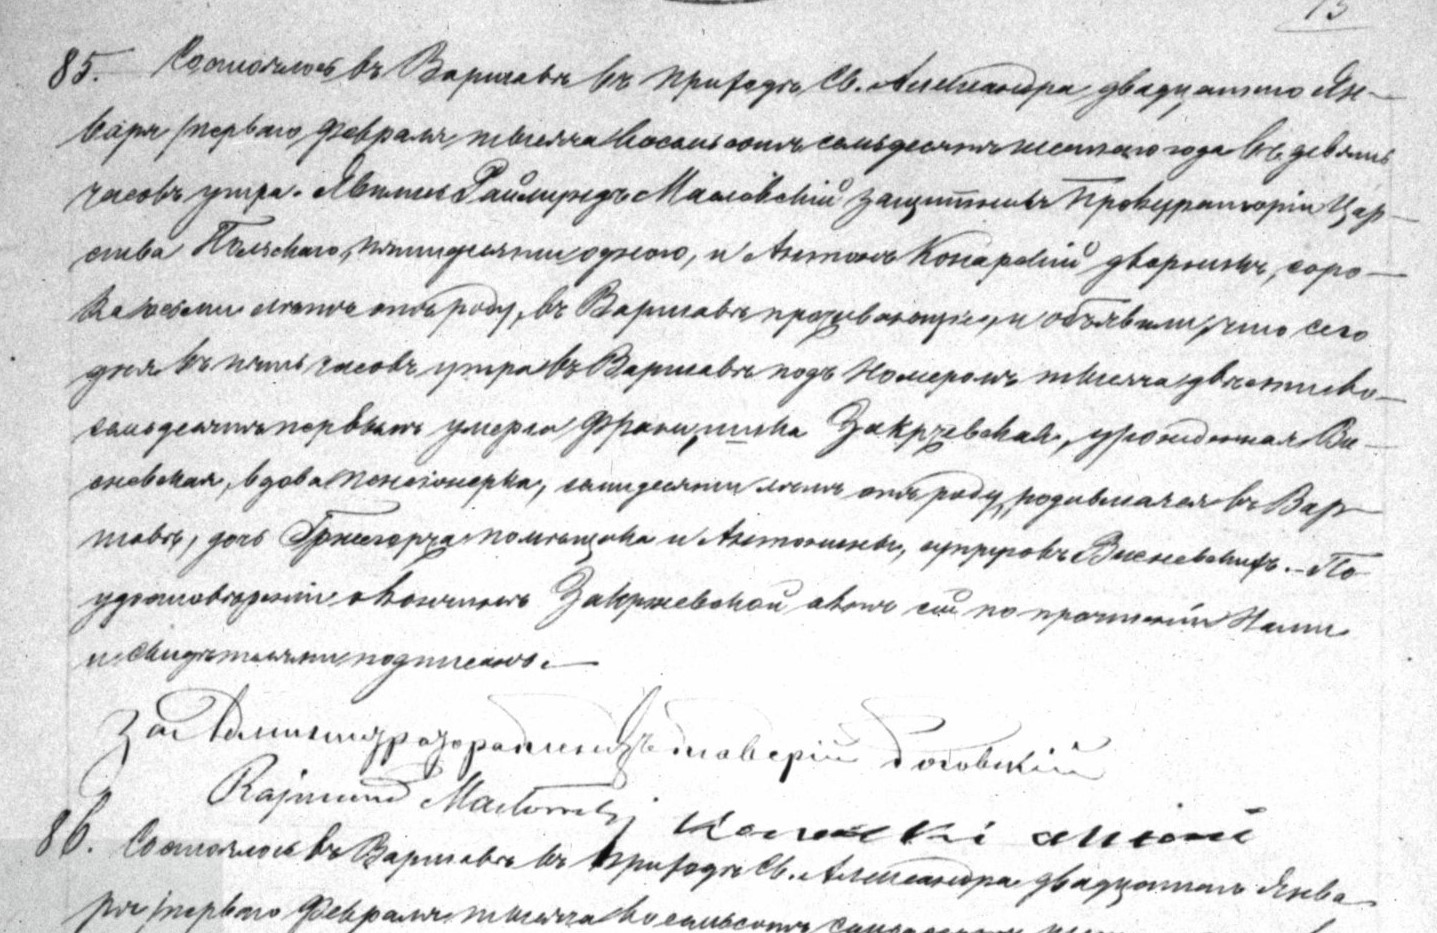 13
85. Состоялось въ Варшавѣ въ приходѣ Св. Александра двадцатаго Ян-
варя /перваго Февраля тысяча восемьсотъ семьдесятъ шестаго года въ девять
часовъ утра. Явились Раймундъ Масловскій защитникъ Прокураторіи Цар-
ства Польскаго, пятидесяти одного, и Антонъ Конарскій дворникъ, соро-
ка лѣтъ отъ роду, въ Варшавѣ проживающіе, и объявили, что сего
дня въ пять часовъ утра въ Варшавѣ подъ Номеромъ тысяча двѣсти во-
семьдесятъ первымъ умерла Францишка Закржевская, урожденная Ви-
сневская, вдова пенсіонерка, семидесяти лѣтъ отъ роду, родившаяся въ Вар-
шавѣ, дочь Гржегоржа помѣщика и Антонины, супруговъ Висневскихъ. – По
удостовѣреніи о кончинѣ Закржевской актъ сей по прочтеніи Нами
и свидѣтелями подписанъ. —
За Администратора
Rajmund
86. Состоялось въ Варшавѣ въ приходѣ Св. Александра двадцатаго Янва
ря /перваго Февраля тысяча восемьсотъ